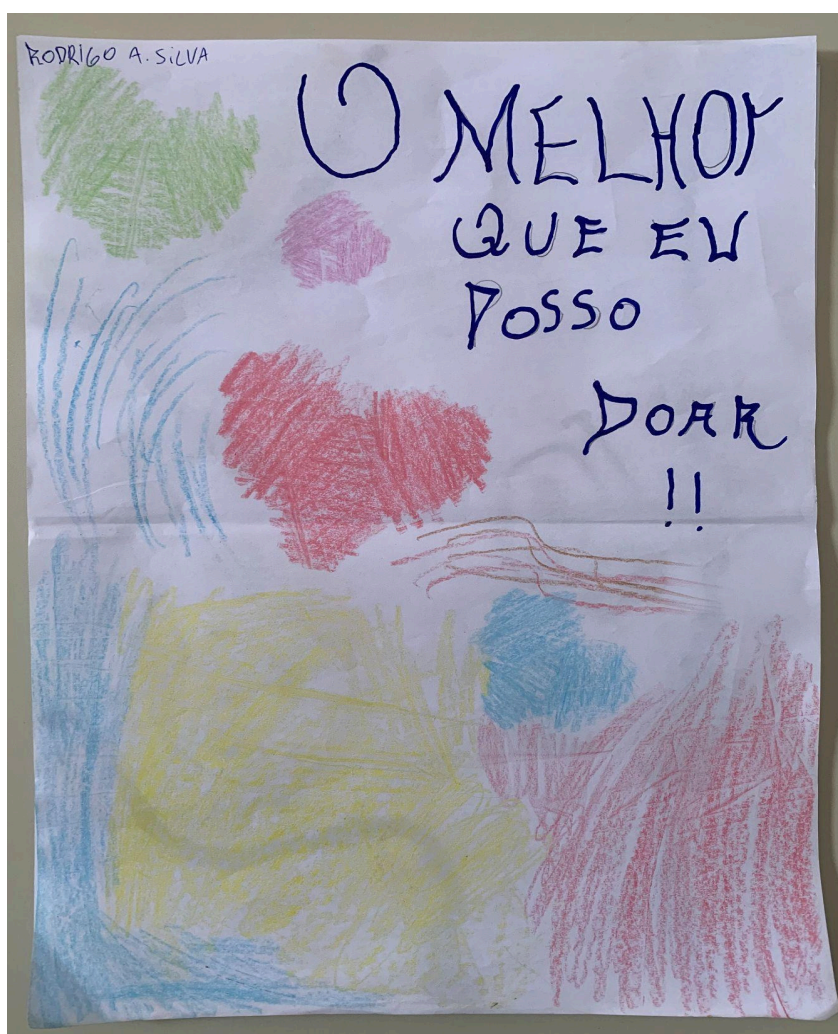 RODRIGO A. SILVA
O MELHOr
QUE EU
POSSO
DOAR
!!